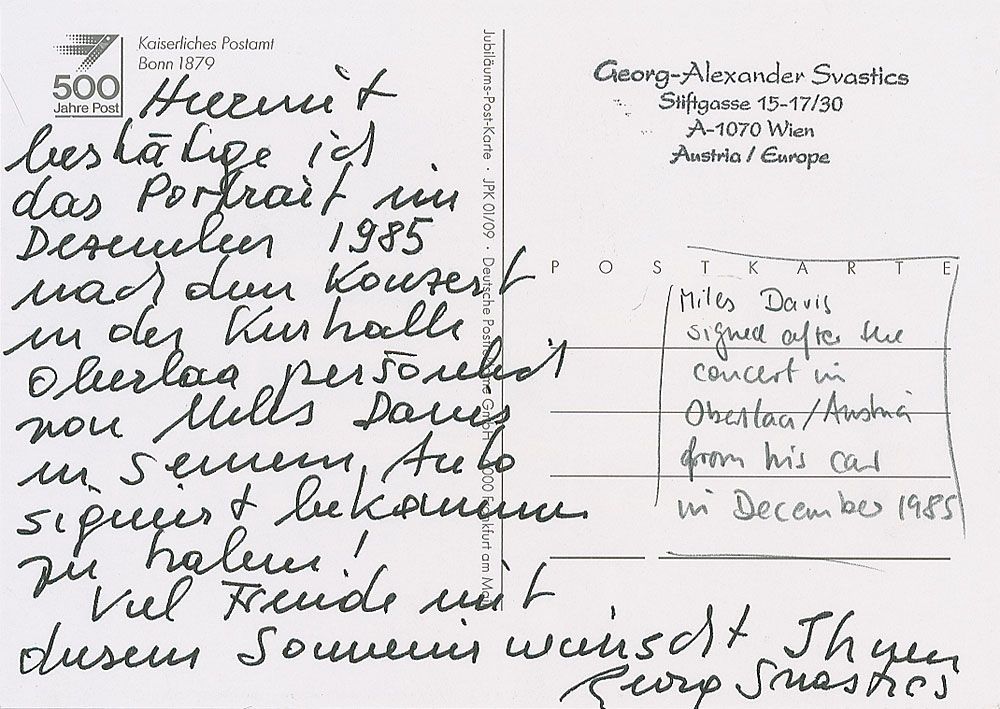 Kaiserliches Postamt
Bonn 1879
500
Jahre Post
Hiermit
bestätige ich
das Portrait im
Dezember 1985
nach dem Konzert
in der Kurhalle
Oberlaa persönlich
von Miles Davis
in seinem Auto
signiert bekommen
zu haben!
Viel Freude mit
diesem Souvenir wünscht Ihnen
Georg Svastics
Jubiläums-Post-Karte · JPK 01/09 · Deutsche Postreklame GmbH · 6000 Frankfurt am Main
Georg-Alexander Svastics
Stiftgasse 15-17/30
A-1070 Wien
Austria / Europe
POSTKARTE
Miles Davis
signed after the
concert in
Oberlaa/Austria
from his car
in December 1985